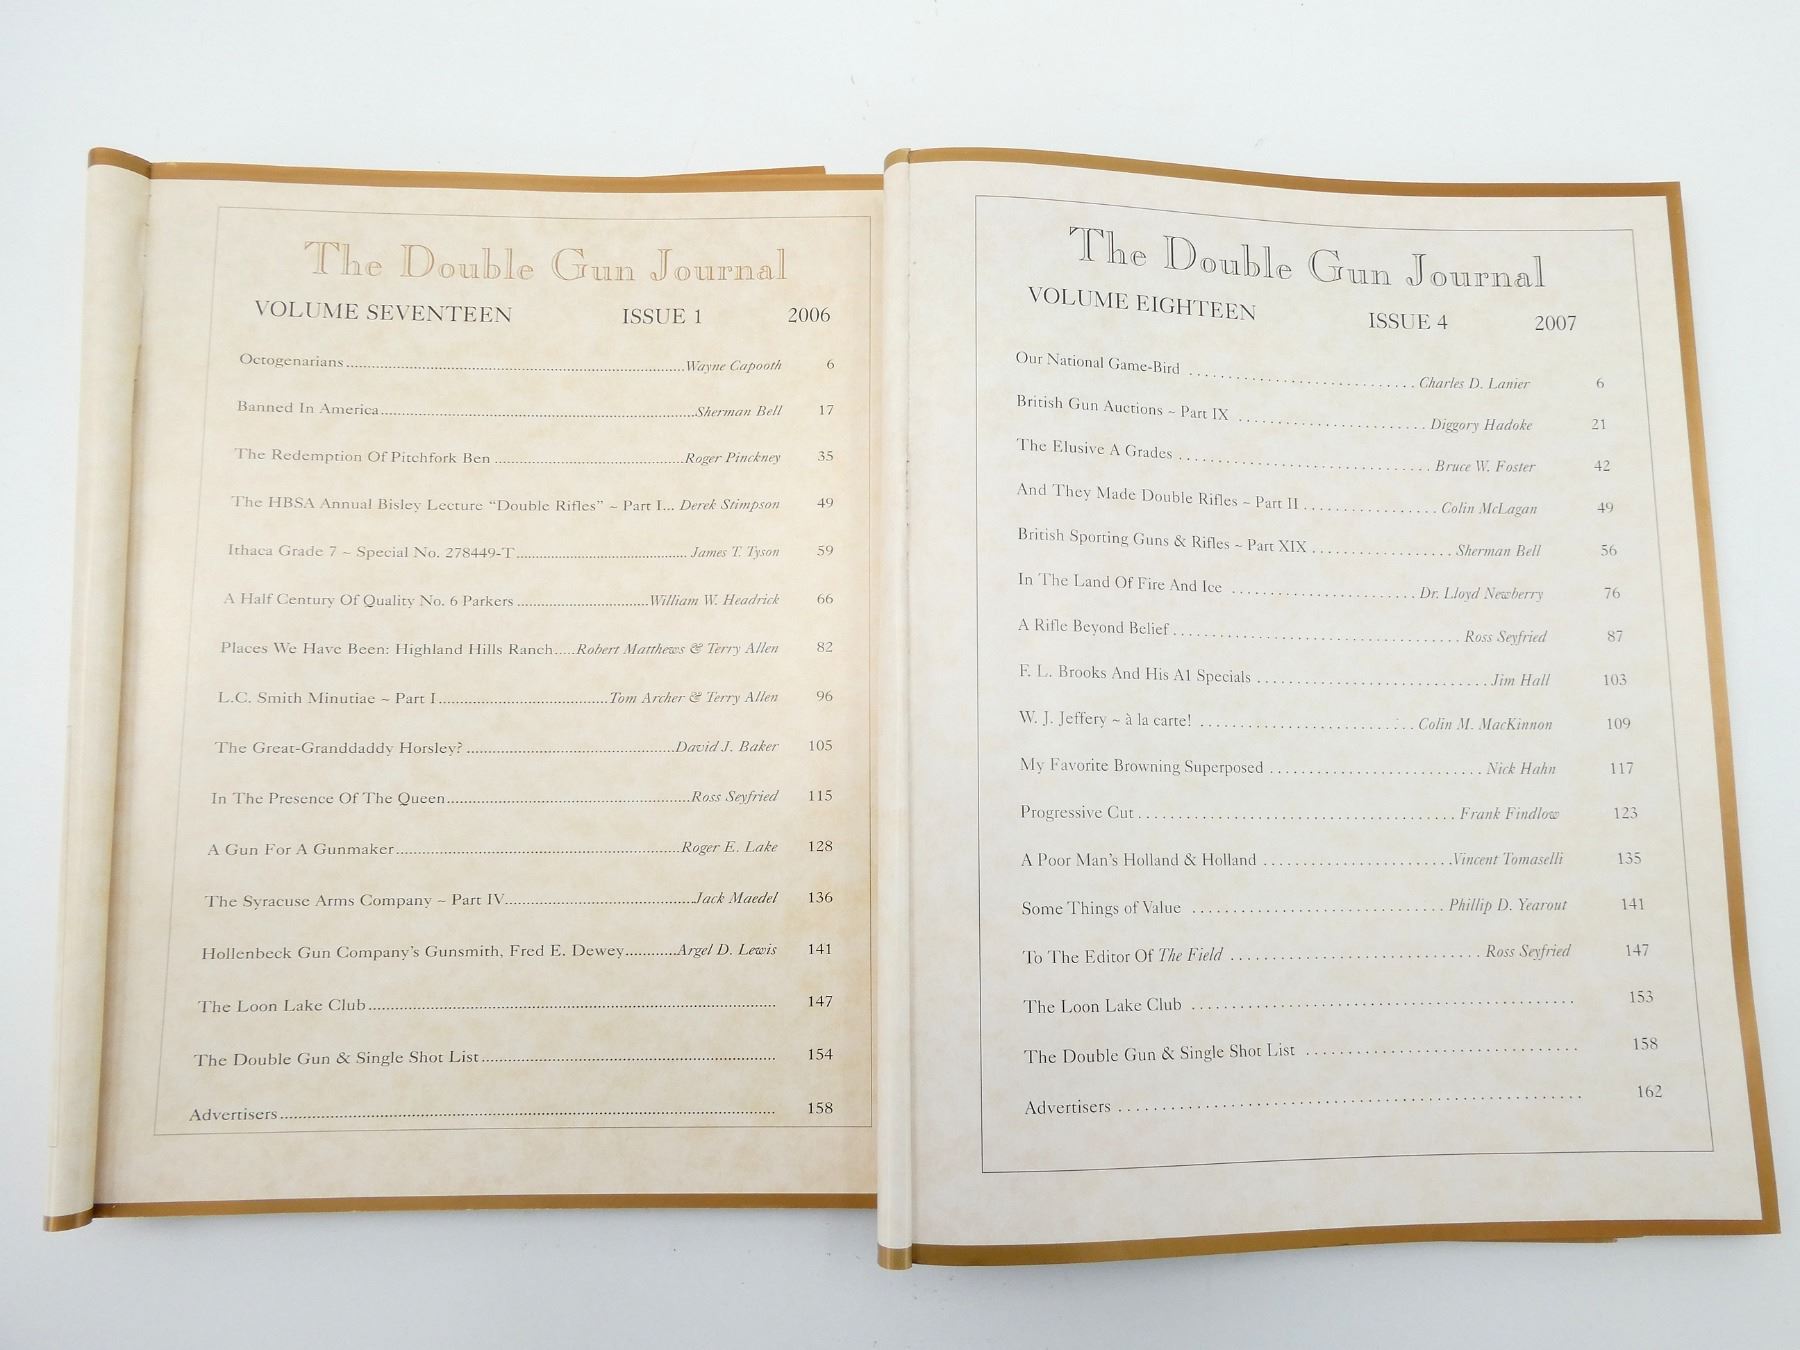 The Double Gun Journal
VOLUME SEVENTEEN ISSUE 1 2006
Octogenarians Wayne Capooth 6
Banned In America Sherman Bell 17
The Redemption Of Pitchfork Ben Roger Pinckney 35
The HBSA Annual Bisley Lecture “Double Rifles” ~ Part I... Derek Stimpson 49
Ithaca Grade 7 ~ Special No. 278449-T James T. Tyson 59
A Half Century Of Quality No. 6 Parkers William W. Headrick 66
Places We Have Been: Highland Hills Ranch.....Robert Matthews & Terry Allen 82
L.C. Smith Minutiae ~ Part I Tom Archer & Terry Allen 96
The Great-Granddaddy Horsley? David J. Baker 105
In The Presence Of The Queen Ross Seyfried 115
A Gun For A Gunmaker Roger E. Lake 128
The Syracuse Arms Company ~ Part IV Jack Maedel 136
Hollenbeck Gun Company’s Gunsmith, Fred E. Dewey Argel D. Lewis 141
The Loon Lake Club 147
The Double Gun & Single Shot List 154
Advertisers 158
The Double Gun Journal
VOLUME EIGHTEEN ISSUE 4 2007
Our National Game-Bird Charles D. Lanier 6
British Gun Auctions ~ Part IX Diggory Hadoke 21
The Elusive A Grades Bruce W. Foster 42
And They Made Double Rifles ~ Part II Colin McLagan 49
British Sporting Guns & Rifles ~ Part XIX Sherman Bell 56
In The Land Of Fire And Ice Dr. Lloyd Newberry 76
A Rifle Beyond Belief Ross Seyfried 87
F. L. Brooks And His A1 Specials Jim Hall 103
W. J. Jeffery ~ à la carte! Colin M. MacKinnon 109
My Favorite Browning Superposed Nick Hahn 117
Progressive Cut Frank Findlow 123
A Poor Man’s Holland & Holland Vincent Tomaselli 135
Some Things of Value Phillip D. Yearout 141
To The Editor Of The Field Ross Seyfried 147
The Loon Lake Club 153
The Double Gun & Single Shot List 158
Advertisers 162